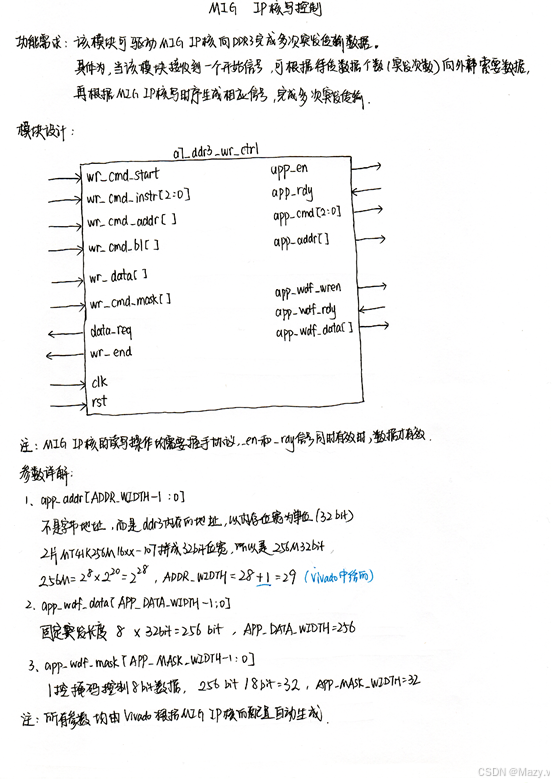 MIG IP核写控制
功能需求：该模块可驱动MIG IP核向DDR3完成多次突发传输数据。
具体为，当该模块接收到一个开始信号，可根据待传数据个数(突发次数)向外部索要数据，
再根据MIG IP核写时序生成相应信号，完成多次突发传输.
模块设计：
a7_ddr3_wr_ctrl
wr_cmd_start
app_en
wr_cmd_instr[2:0]
app_rdy
wr_cmd_addr[ ]
app_cmd[2:0]
wr_cmd_bl[ ]
app_addr[ ]
wr_data[ ]
app_wdf_wren
wr_cmd_mask[ ]
app_wdf_rdy
data_req
app_wdf_data[ ]
wr_end
clk
rst
注：MIG IP核的读写操作均需要握手协议，_en和_rdy信号同时有效时，数据才有效.
参数详解：
1、app_addr[ADDR_WIDTH-1:0]
不是字节地址，而是ddr3内存的地址，以内存位宽为单位(32bit)
2片MT41K256M16xx-107拼成32bit位宽，所以是256M32bit，
256M=2^8×2^20=2^28，ADDR_WIDTH=28+1=29 (vivado中给的)
2、app_wdf_data[APP_DATA_WIDTH-1:0]
固定突发长度 8 × 32bit=256 bit，APP_DATA_WIDTH=256
3、app_wdf_mask[APP_MASK_WIDTH-1:0]
1位掩码控制8bit数据，256 bit / 8bit=32，APP_MASK_WIDTH=32
注：所有参数均由Vivado根据MIG IP核的配置自动生成.
CSDN @Mazy.v